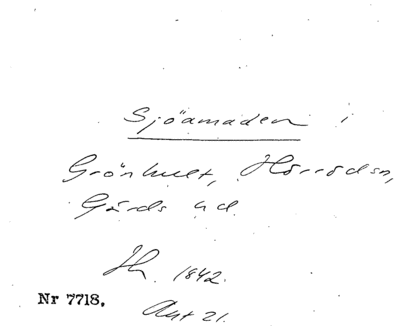 Sjöamaden i
Grönhult, Hörröds sn,
Gärds hd.
Jh 1842.
Nr 7718.
Akt 21.